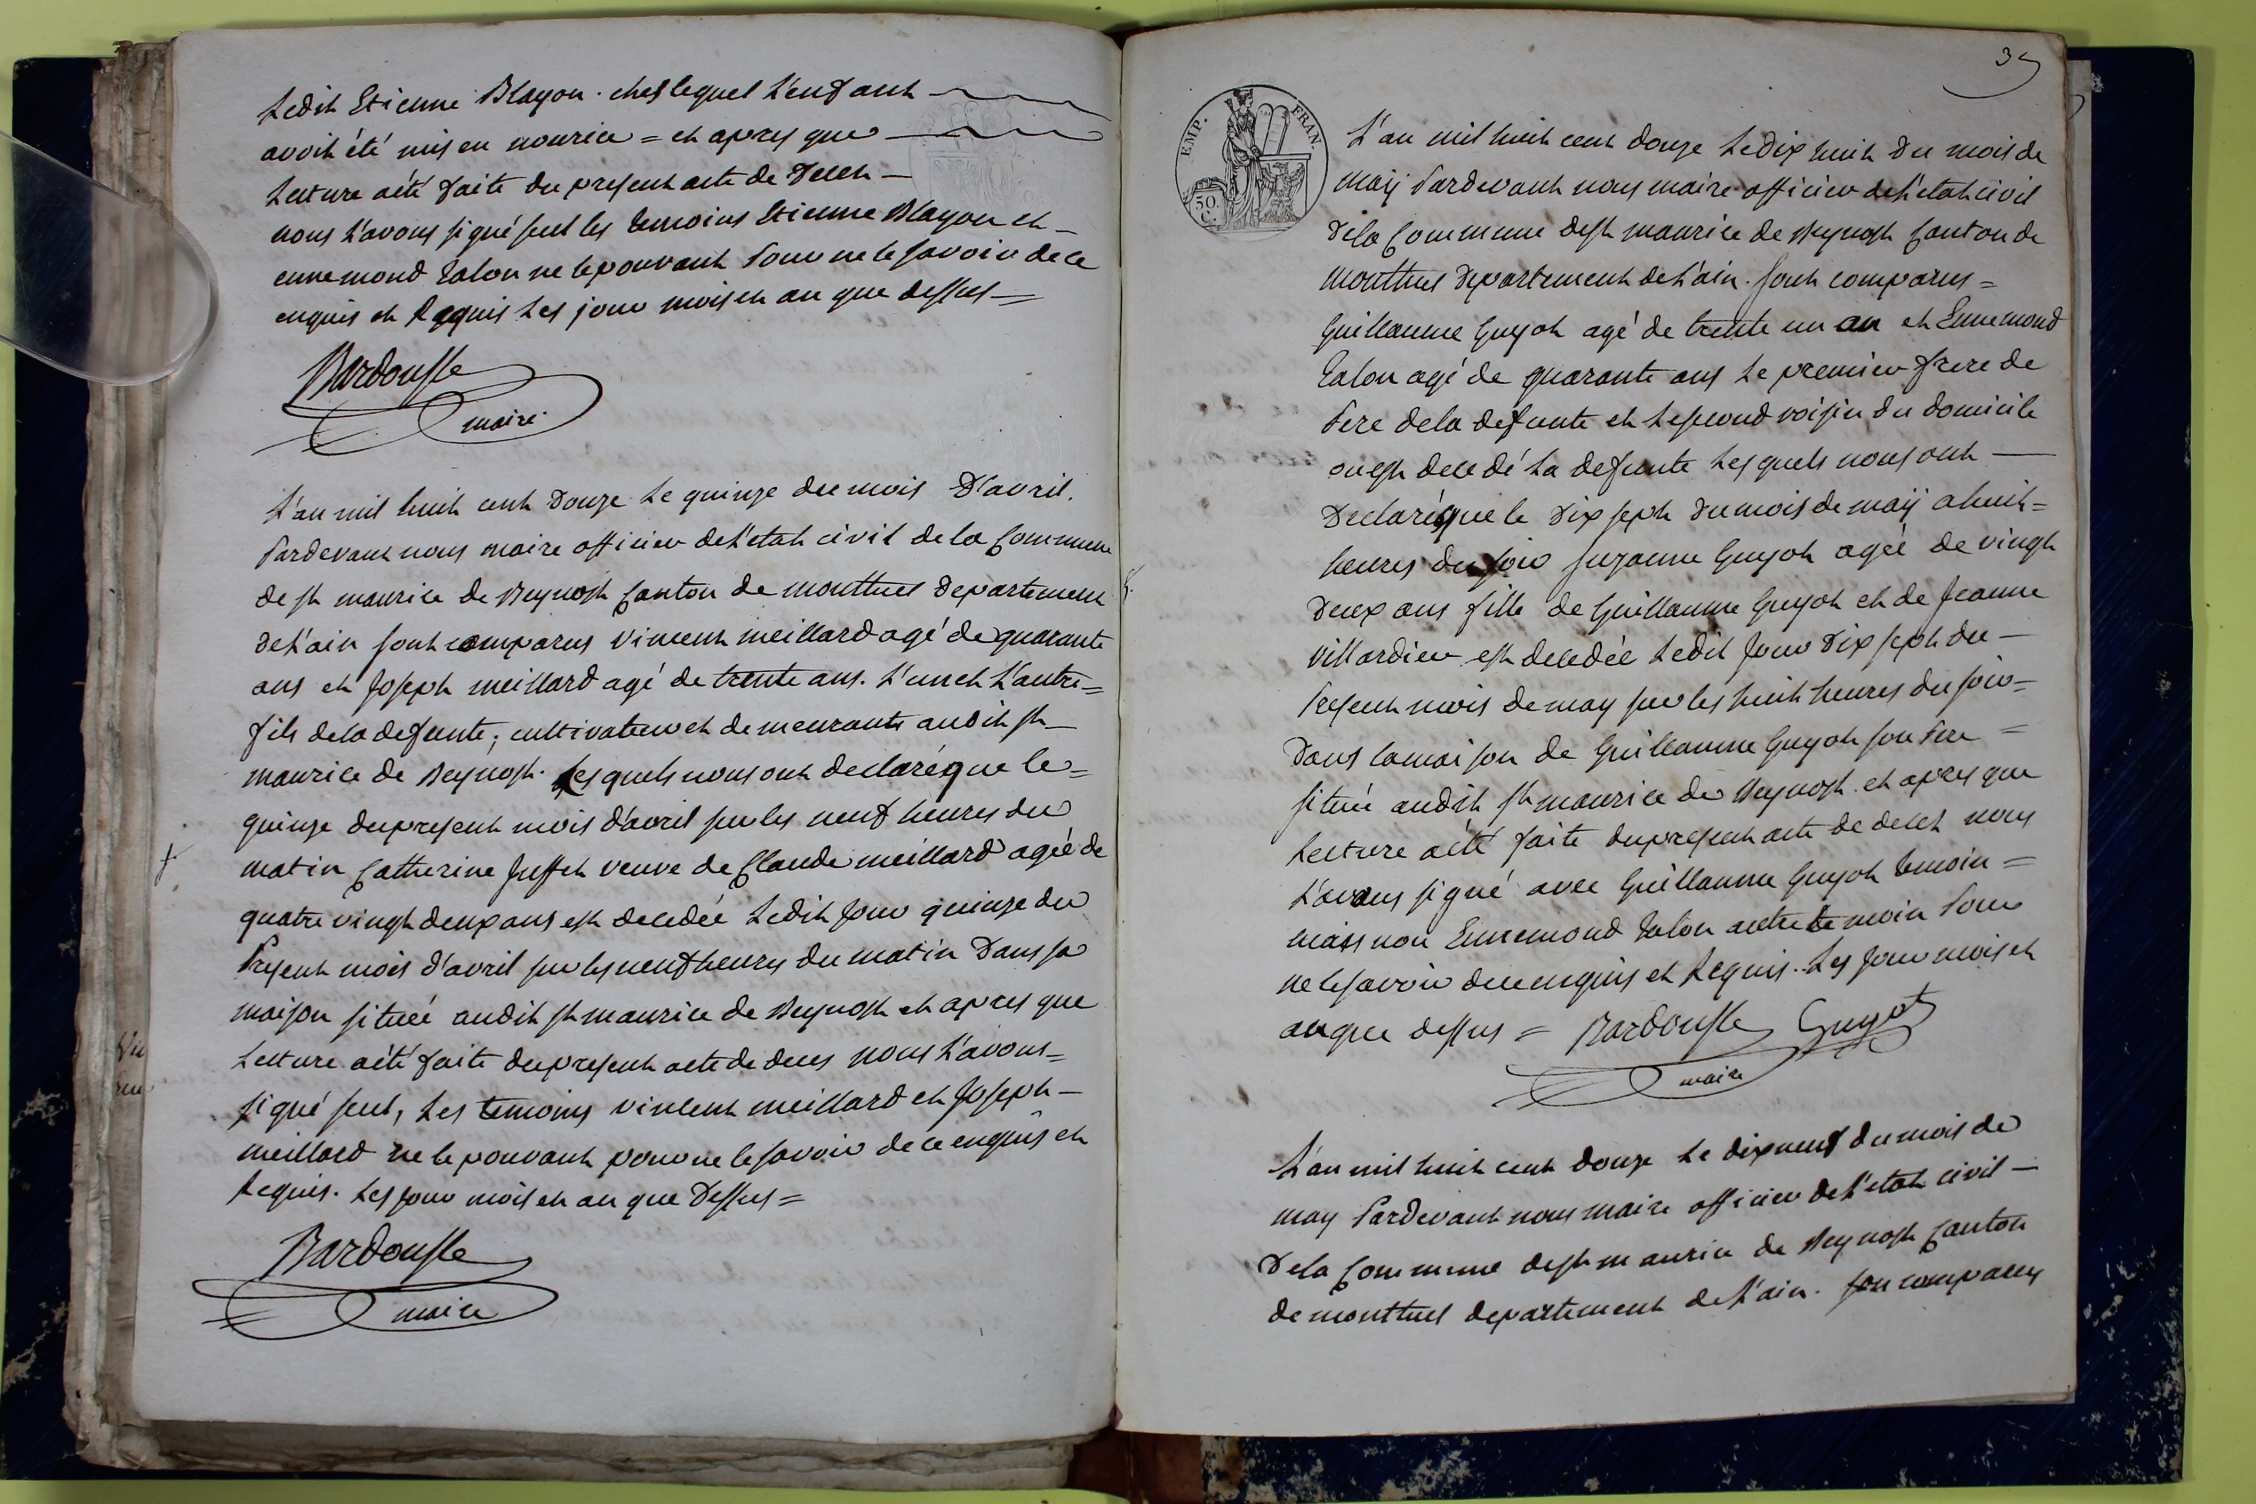 Ledit Etienne Blayon. ches lequel L'enfant
avoit été mis en nourice = et apres que
Lecture a été faite du present acte de Decet
nous L'avons signé seul les temoins Etienne Blayon et
ennemond Talon ne le pouvant Pour ne le savoir de ce
enquis et Requis Les jour mois et an que dessus =
Bardousse
maire
L'an mil huit cent Douze Le quinze du mois D'avril.
Pardevant nous maire officier de L'etat civil de la Commune
de st maurice de Beynost Canton de montluel Departement
de L'ain sont comparus Vincent meillard agé de quarante
ans et Joseph meillard agé de trente ans. L'un et L'autre =
fils de la defunte; cultivateur et demeurants audit st
maurice de Beynost. Lesquels nous ont declaré que le =
quinze du present mois d'avril sur les neuf heures du
matin Catherine Juffet veuve de Claude meillard agée de
quatre vingt deux ans est decedée Ledit Jour quinze du
Present mois d'avril sur les neuf heures du matin Dans sa
maison située audit st maurice de Beynost et apres que
Lecture a été faite du present acte de deces nous L'avons =
signé seul, Les temoins vincent meillard et Joseph
meillard ne le pouvant pour ne le savoir de ce enquis et
Requis. Les jour mois et an que Dessus =
Bardousse
maire
35
EMP. FRAN.
50. C.
L'an mil huit cent douze Le Dix huit Du mois de
maÿ Pardevant nous maire officier de L'etat civil
De la Commune de st maurice de Beynost Canton de
montluel Departement de L'ain. sont comparus =
Guillaume Guyot agé de trente un an et Ennemond
Talon agé de quarante ans Le premier frere de
Pere de la defunte et Le second voisin du domicile
ou est decedé La defunte Lesquels nous ont
Declarés que le Dix sept Du mois de maÿ a huit =
heures du soir suzanne Guyot agée de vingt
Deux ans fille de Guillaume Guyot et de Jeanne
villardieu est decedée Ledit Jour Dix sept du
Present mois de may sur les huit heures du soir =
Dans la maison de Guillaume Guyot son Pere =
située audit st maurice de Beynost. et apres que
Lecture a été faite du present acte de decet nous
L'avons signé avec Guillaume Guyot temoin =
mais non Ennemond Talon autre temoin Pour
ne le savoir de ce enquis et Requis. Les jour mois et
an que dessus = Bardousse Guyot
maire
L'an mil huit cent douze Le dix neuf du mois de
may Pardevant nous maire officier de L'etat civil
De la Commune de st maurice de Beynost Canton
de montluel departement de L'ain. son comparus